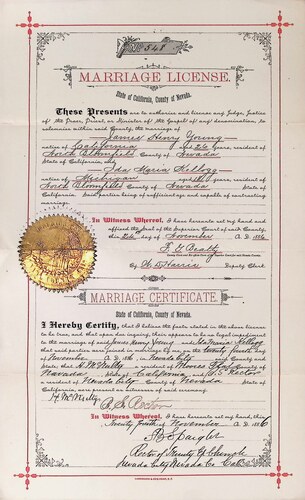 No 548
MARRIAGE LICENSE.
State of California, County of Nevada.
These Presents are to authorize and license any Judge, Justice
of the Peace, Priest, or Minister of the Gospel of any denomination, to
solemnize within said County, the marriage of
James Henry Young
native of California aged 26 years, resident of
North Bloomfield County of Nevada
State of California, and
Ida Maria Kellogg
native of Michigan aged years, resident of
North Bloomfield County of Nevada
State of California. Said parties being of sufficient age and capable of contracting
marriage.
In Witness Whereof, I have hereunto set my hand and
affixed the Seal of the Superior Court of said County,
this 24th day of November A. D. 1886
F. G. Beatty
By Deputy Clerk.
MARRIAGE CERTIFICATE.
State of California, County of Nevada.
I Hereby Certify, that I believe the facts stated in the above license
to be true, and that upon due inquiry, there appears to be no legal impediment
to the marriage of said James Henry Young and Ida Maria Kellogg
that said parties were joined in marriage by me, on the twenty fourth day
of November A. D. 1886, in Nevada City County and
State; that H. McNulty a resident of Moores Flat County of
Nevada State of California and Rector
a resident of Nevada City County of Nevada State of
California, were present as witnesses of said ceremony.
H. McNulty
Rector
In Witness Whereof, I have hereunto set my hand, this
twenty fourth of November A. D. 1886
Rector of Trinity Church
Nevada City Nevada Co Cal